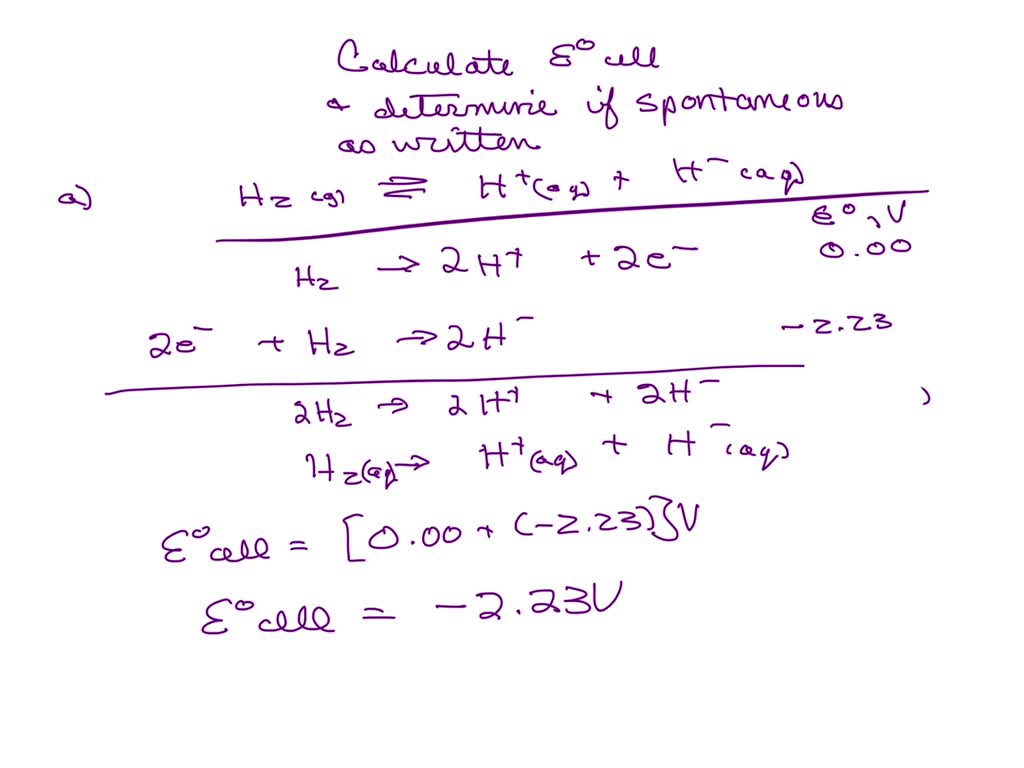 Calculate ℰ° cell
& determine if spontaneous
as written
a) H₂ (g) ⇌ H⁺(aq) + H⁻(aq)
ℰ°, V
H₂ → 2H⁺ + 2e⁻ 0.00
2e⁻ + H₂ → 2H⁻ -2.23
2H₂ → 2H⁺ + 2H⁻ ,
H₂(g) → H⁺(aq) + H⁻(aq)
ℰ°cell = [0.00 + (-2.23)]V
ℰ°cell = -2.23V